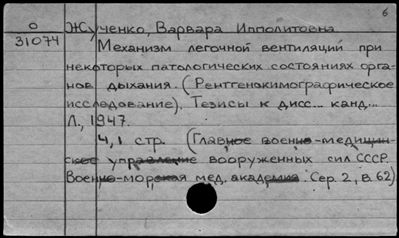 6
О Жученко, Варвара Ипполитовна
31074
Механизм легочной вентиляции при
некоторых патологических состояниях орга-
нов дыхания. (Рентгенокимографическое
исследование). Тезисы к дисс... канд...
Л., 1947.
4,1 стр. (Главное военно-медицин-
ское управление вооруженных сил СССР.
Военно-морская мед. академия. Сер. 2, в. 62)